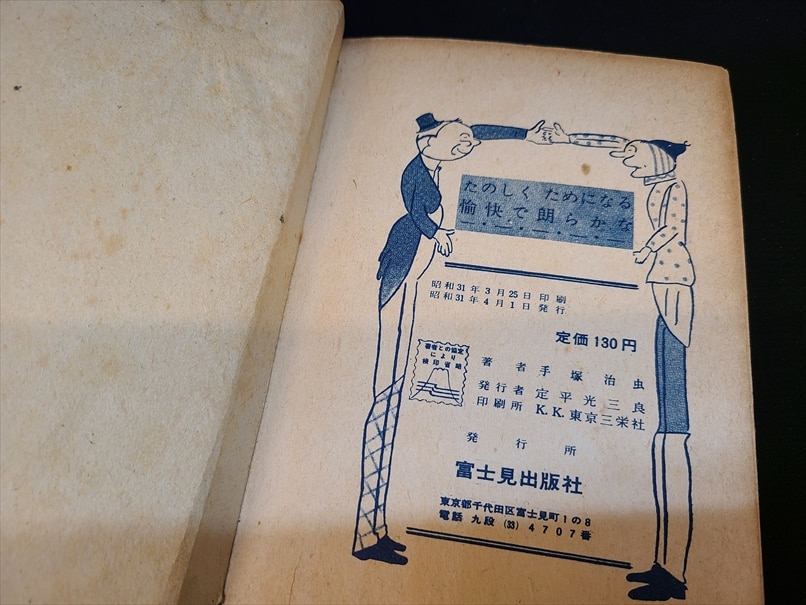 たのしく ためになる
愉快で朗らかな
昭和31年3月25日印刷
昭和31年4月1日発行
定価130円
著者との協定
により
検印省略
著者 手塚治虫
発行者 定平光三良
印刷所 K.K.東京三栄社
発行所
富士見出版社
東京都千代田区富士見町1の8
電話 九段 (33) 4707番